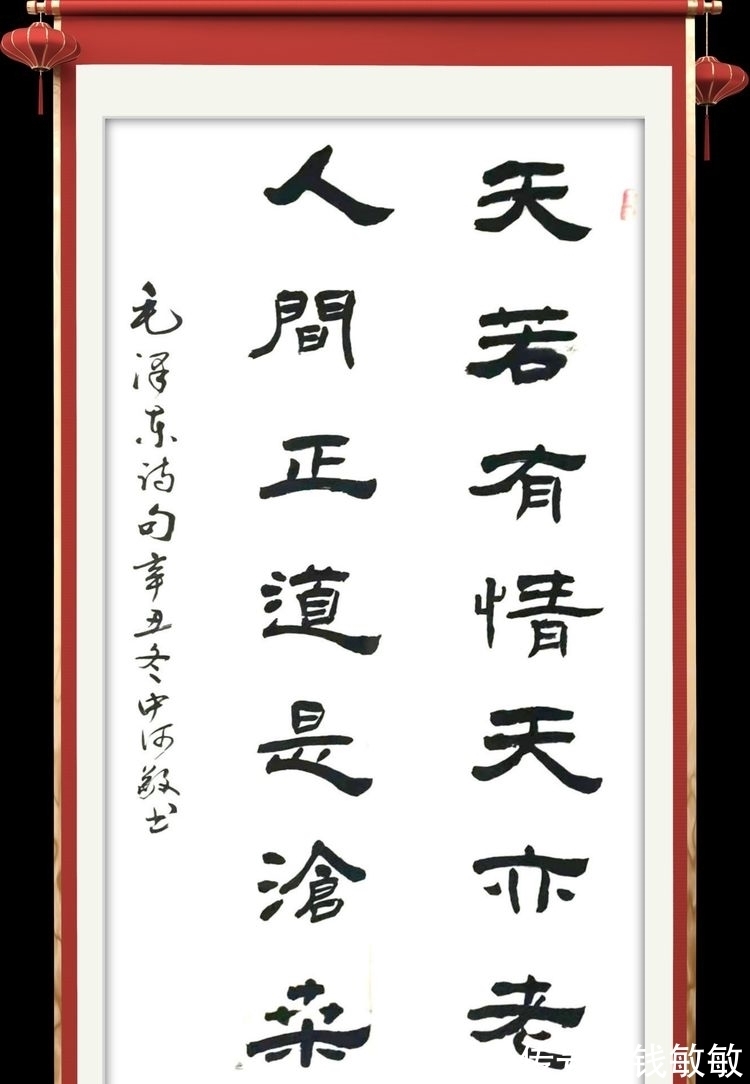 天若有情天亦老
人間正道是滄桑
毛泽东诗句辛丑冬中河书
钱敏敏